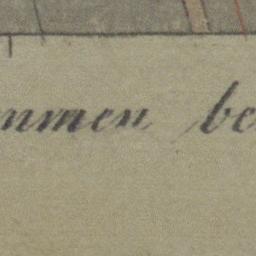 mmen be